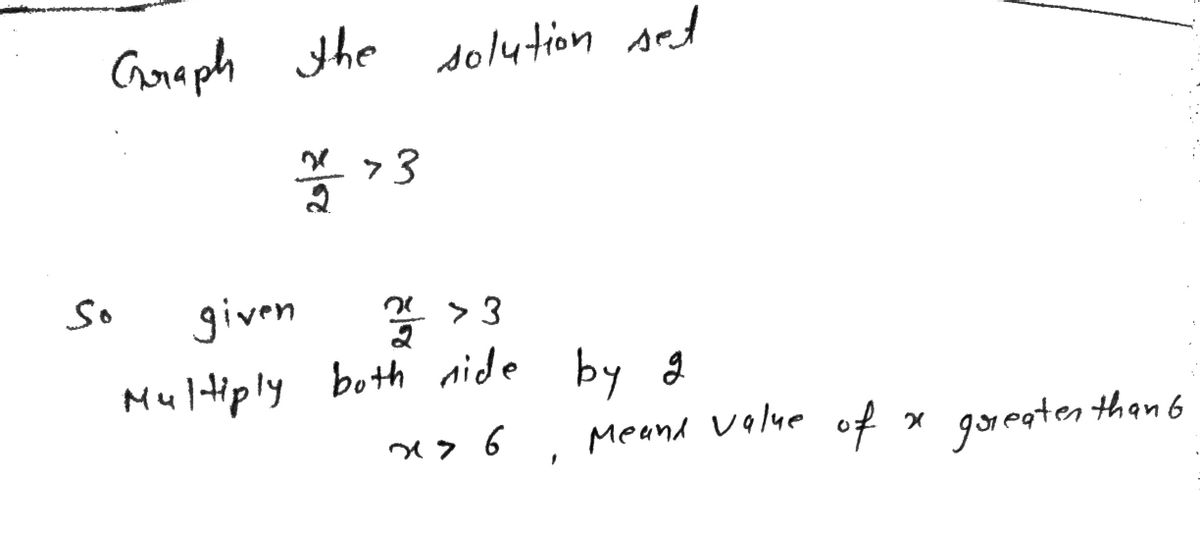 Graph the solution set
x/2 > 3
So given x/2 > 3
Multiply both side by 2
x > 6 , Means value of x greater than 6